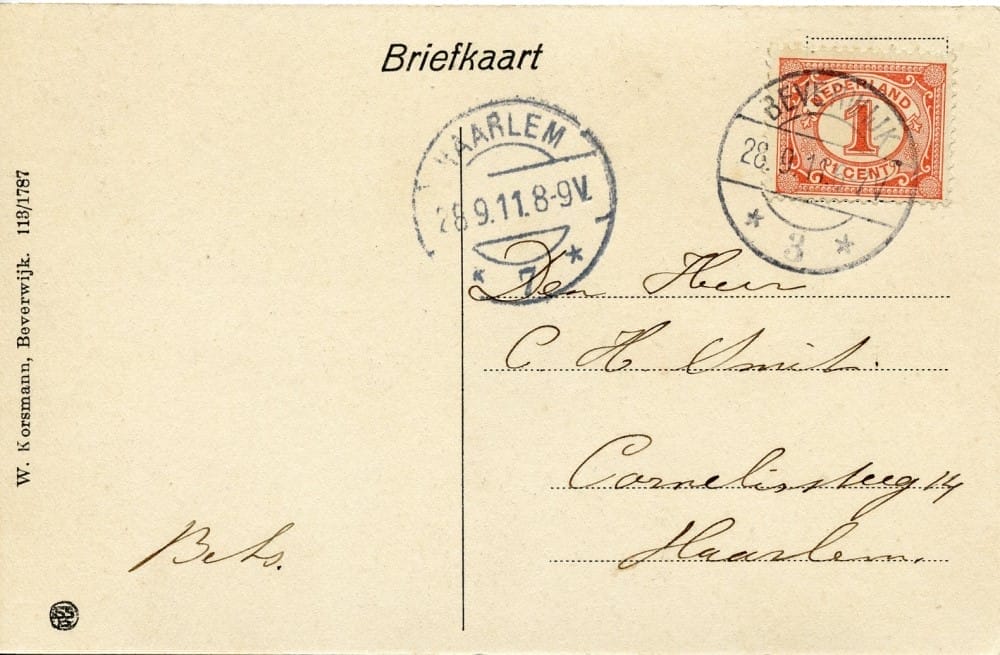 Briefkaart
HAARLEM
28.9.11.8-9V.
* 7 *
NEDERLAND
1
1 CENT
28.9.1
* 3 *
Den Heer
C. H. Smit.
Cornelissteeg 14
Haarlem.
Bets.
W. Korsmann, Beverwijk. 113/1787